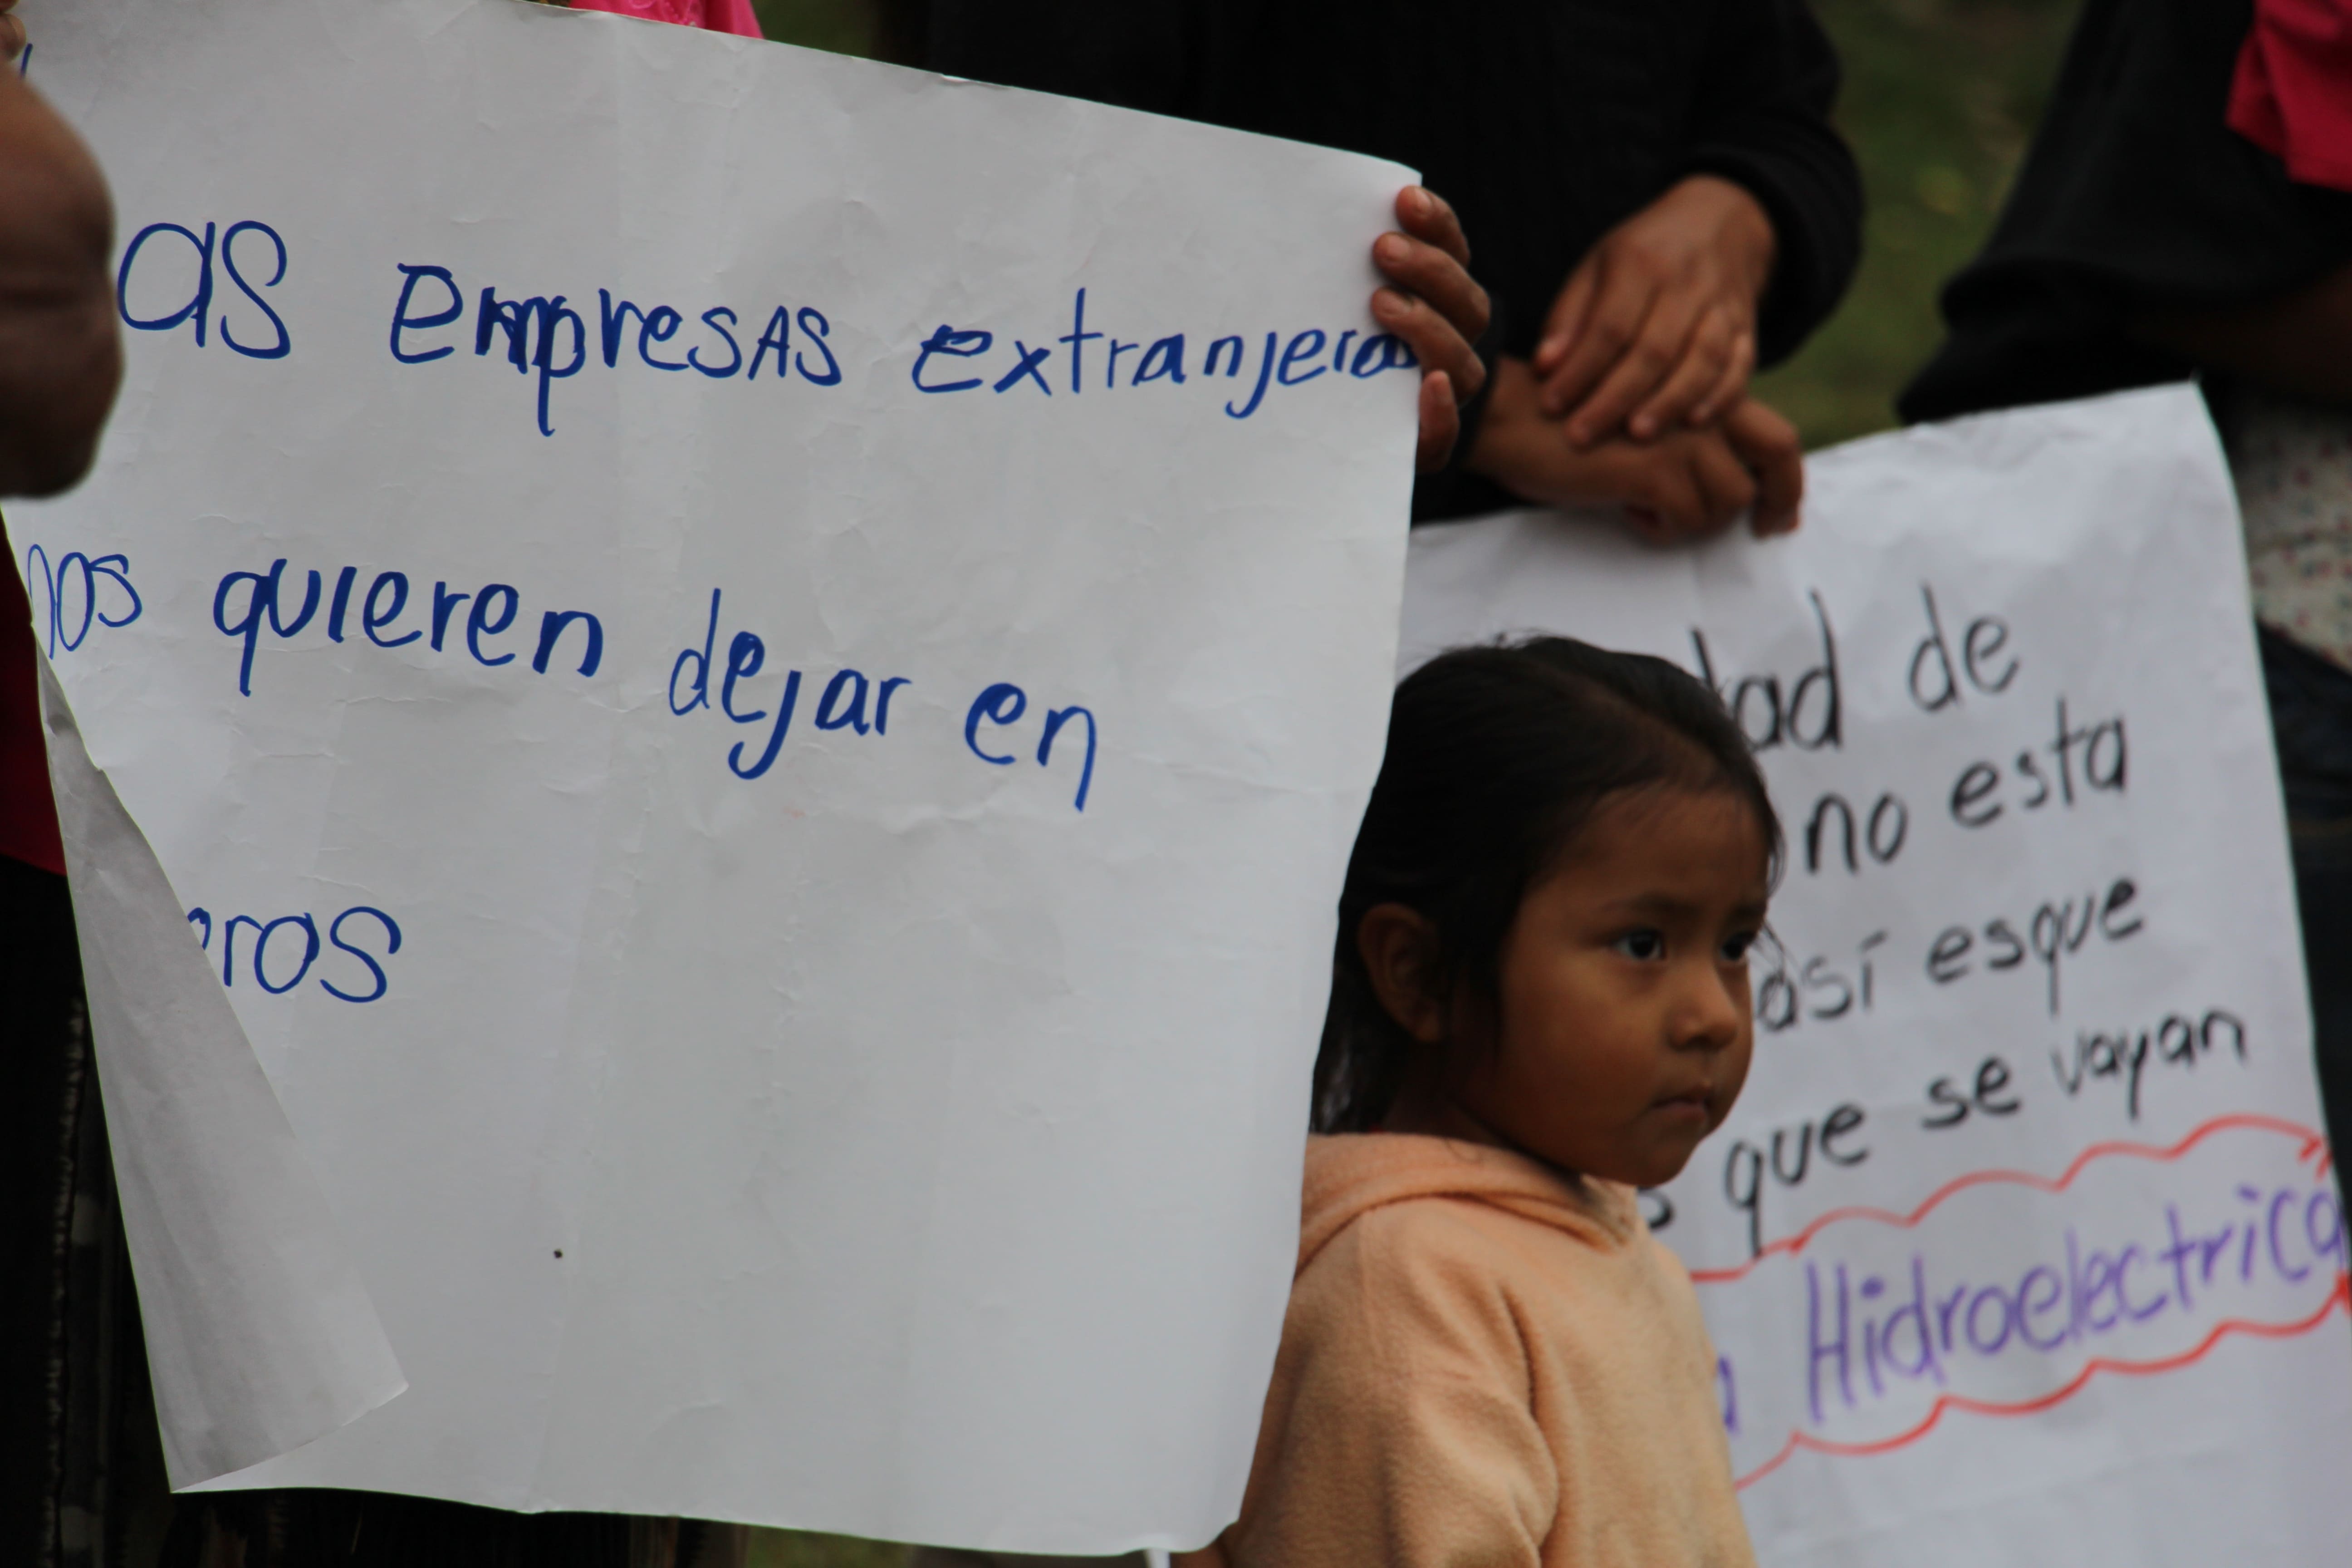 as empresas extranjeras
nos quieren dejar en
eros
dad de
no esta
así esque
que se vayan
Hidroelectrica